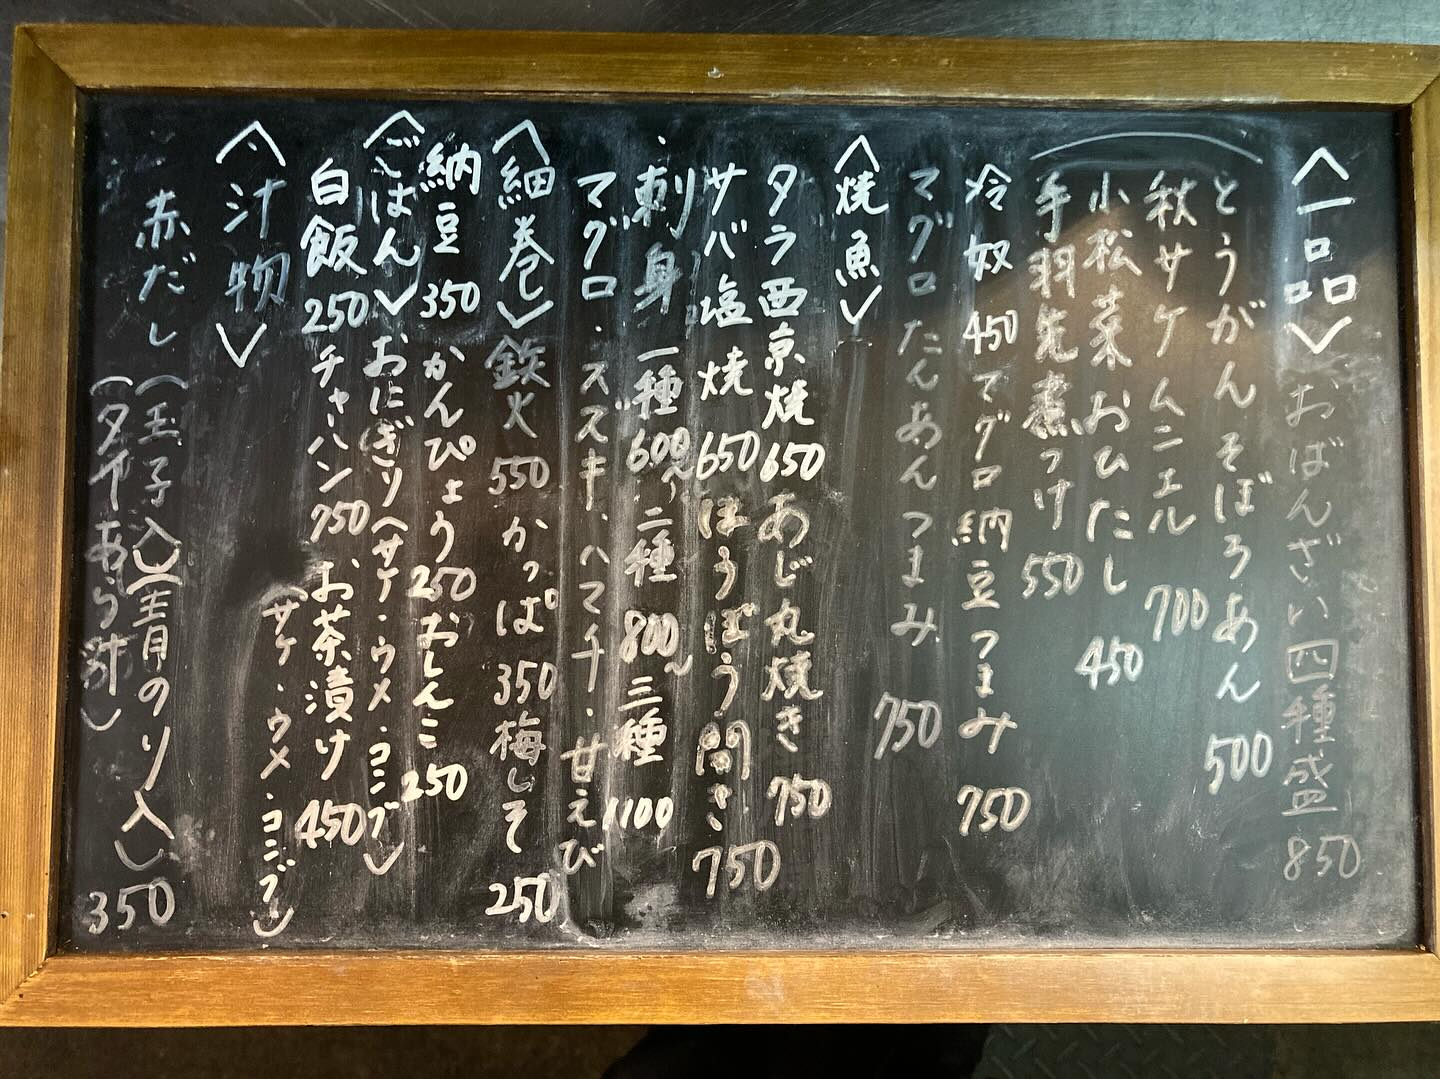 〈一品〉おばんざい四種盛850
とうがんそぼろあん500
秋サケムニエル700
小松菜おひたし450
手羽先煮つけ550
冷奴450マグロ納豆つまみ750
マグロたんあんつまみ750
〈焼魚〉
タラ西京焼650あじ丸焼き750
サバ塩焼650ほうぼう開き750
・刺身一種600〜、二種800〜三種1100
マグロ・スズキ・ハマチ・甘えび
〈細巻〉鉄火550かっぱ350梅しそ250
納豆350かんぴょう250おしんこ250
〈ごはん〉おにぎり(サケ・ウメ・コンブ)
白飯250チャーハン750お茶漬け450
(サケ・ウメ・コンブ)
〈汁物〉
赤だし(玉子入)(青のり入)350
(タイあら汁)